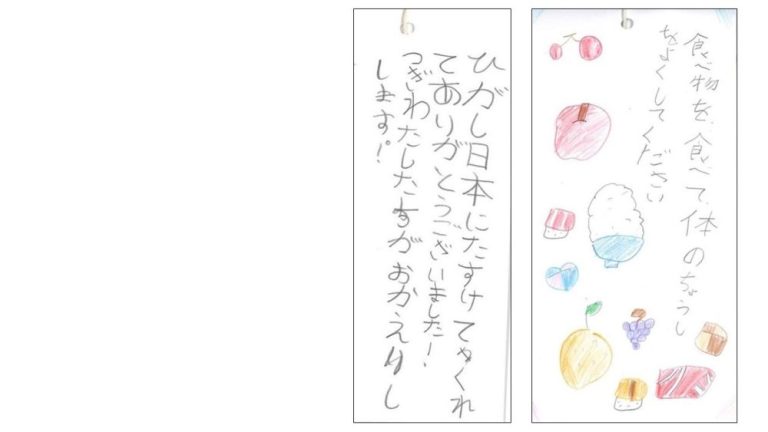 ひがし日本にたすけてくれ
てありがとうございました!
つぎわたしたちがおかえし
します!
食べ物を食べて体のちょうし
をよくしてください